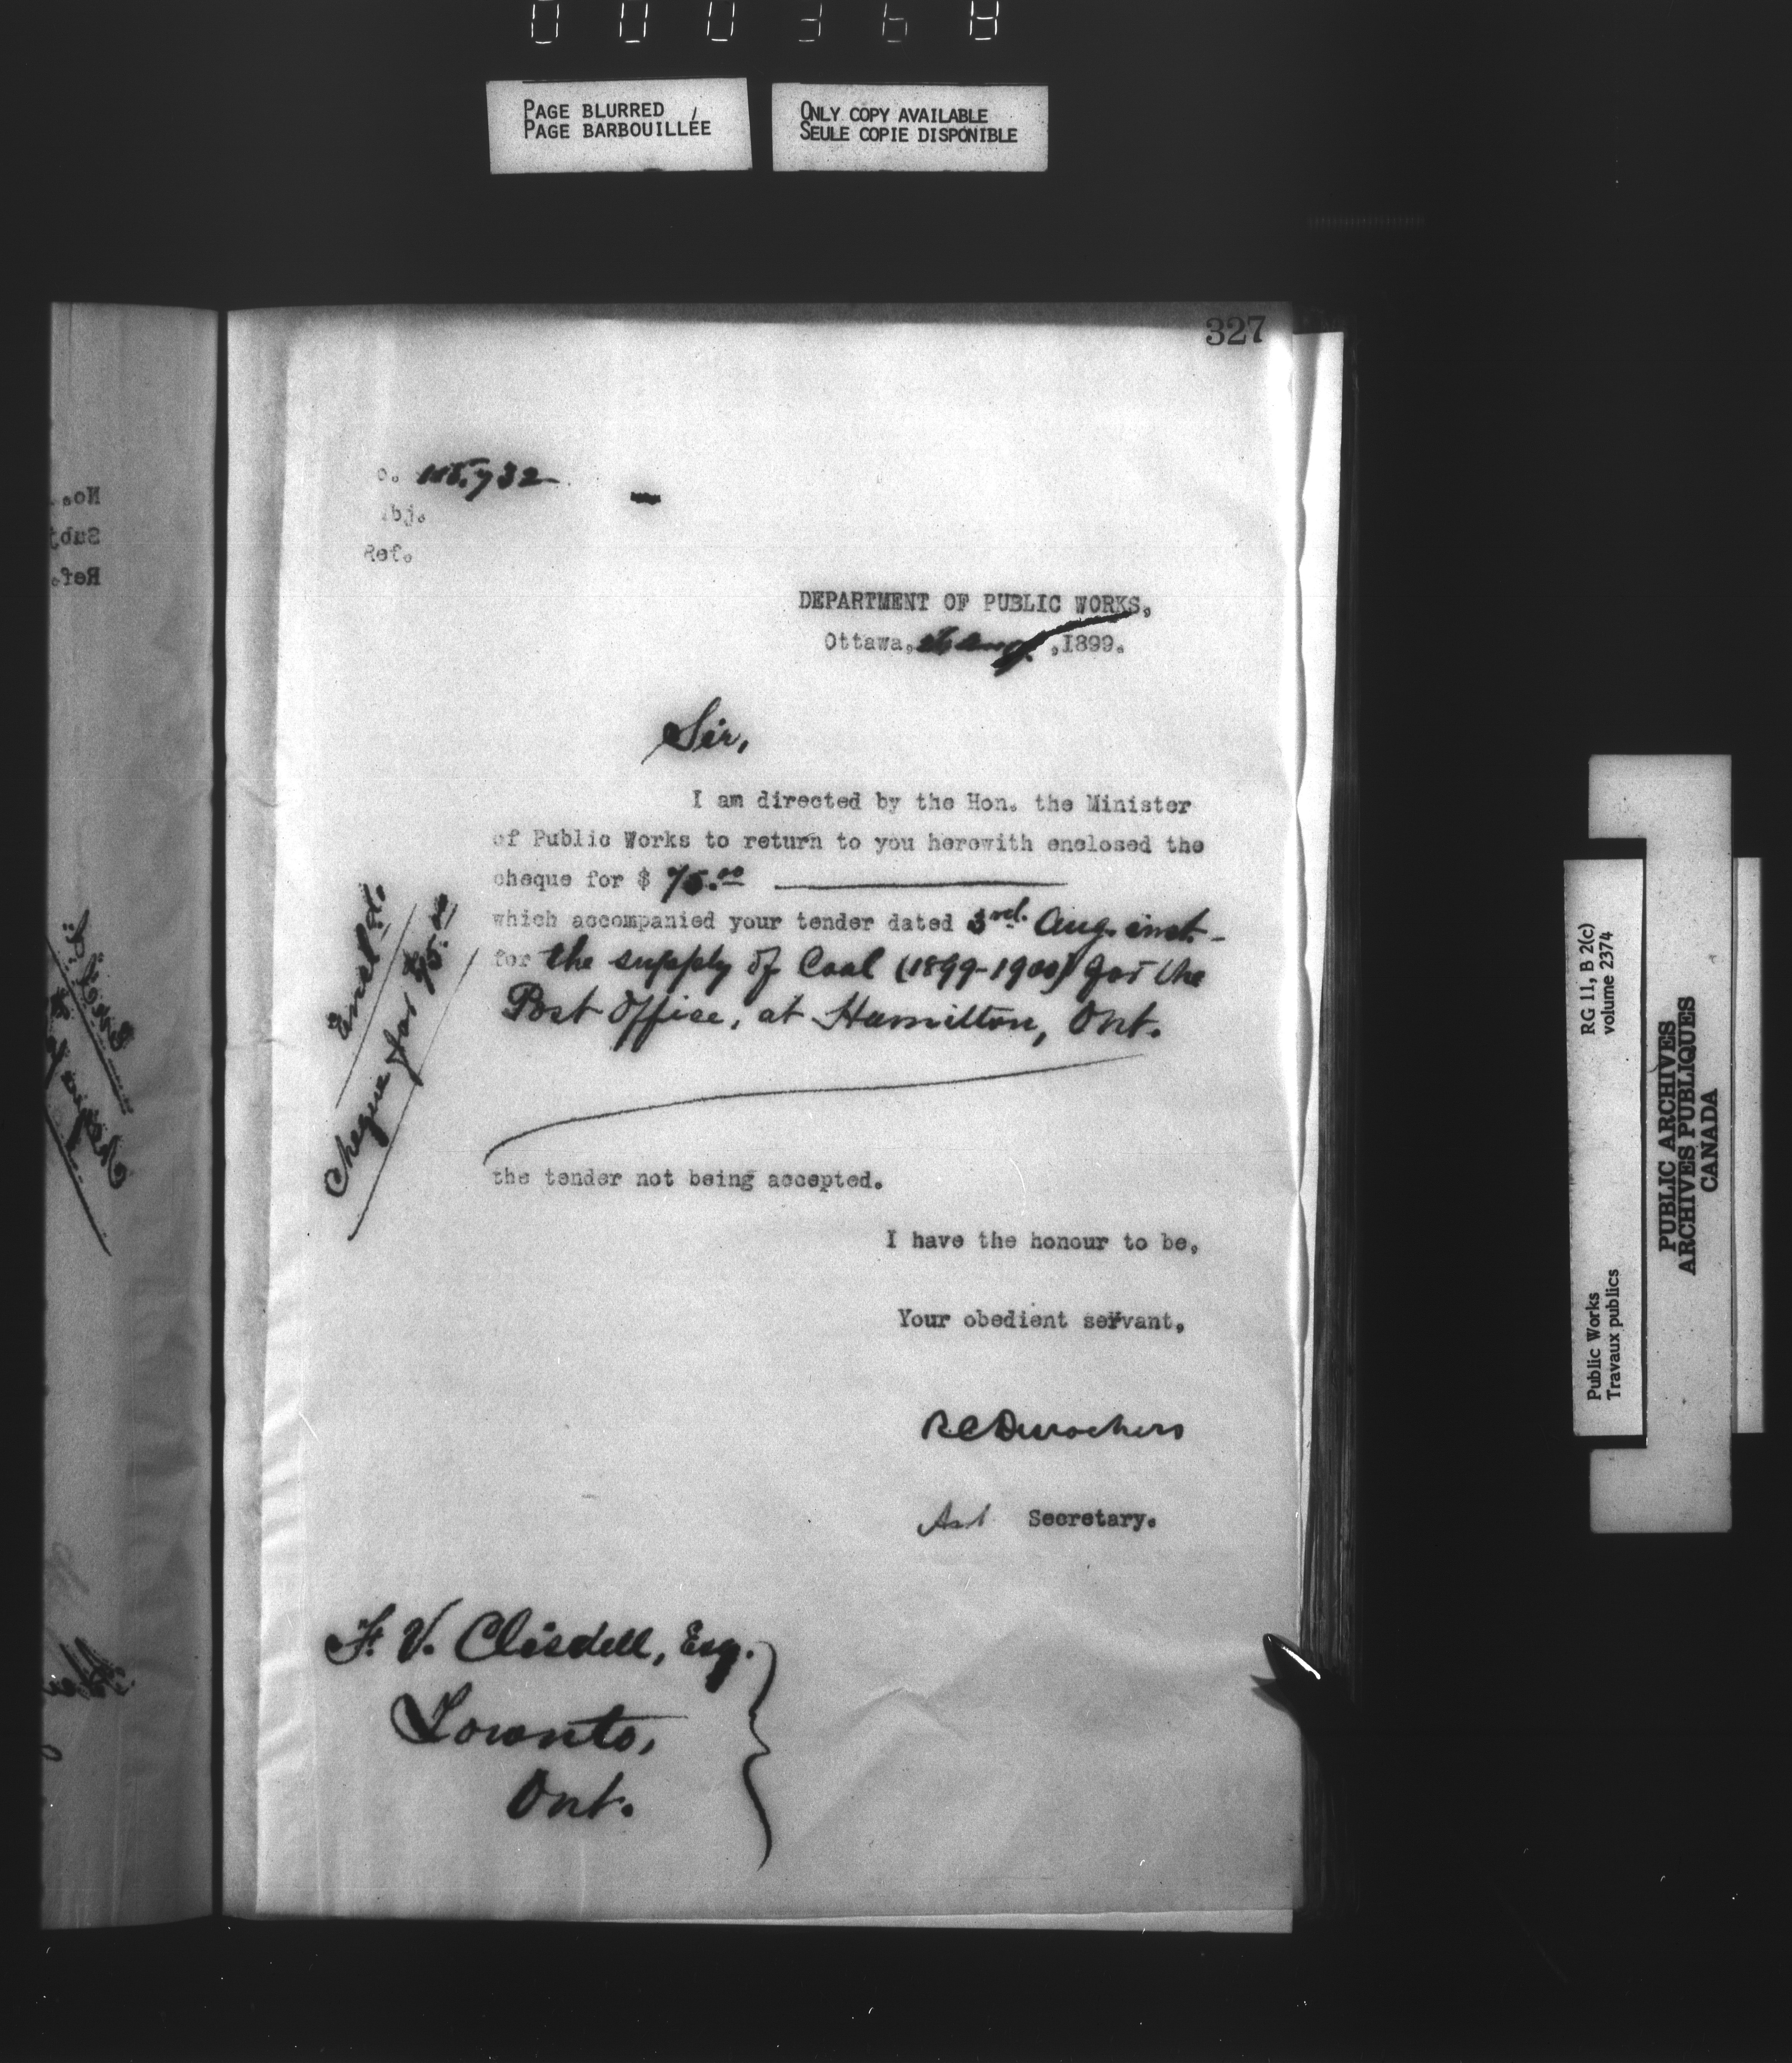 000368
PAGE BLURRED
PAGE BARBOUILLÉE
ONLY COPY AVAILABLE
SEULE COPIE DISPONIBLE
327
o. 732
bj.
Ref.
DEPARTMENT OF PUBLIC WORKS,
Ottawa, Aug. ,1899.
Sir,
I am directed by the Hon. the Minister
of Public Works to return to you herewith enclosed the
cheque for $ 75.00
which accompanied your tender dated 3rd. Aug. inst.
for the supply of Coal (1899-1900) for the
Post Office, at Hamilton, Ont.
Encl'd.
Cheque for 75.00
the tender not being accepted.
I have the honour to be,
Your obedient servant,
RCDesrochers
Ast Secretary.
F. V. Clisdell, Esq.
Toronto,
Ont.
No.
Subj
Ref.
RG 11, B 2(c)
volume 2374
Public Works
Travaux publics
PUBLIC ARCHIVES
ARCHIVES PUBLIQUES
CANADA